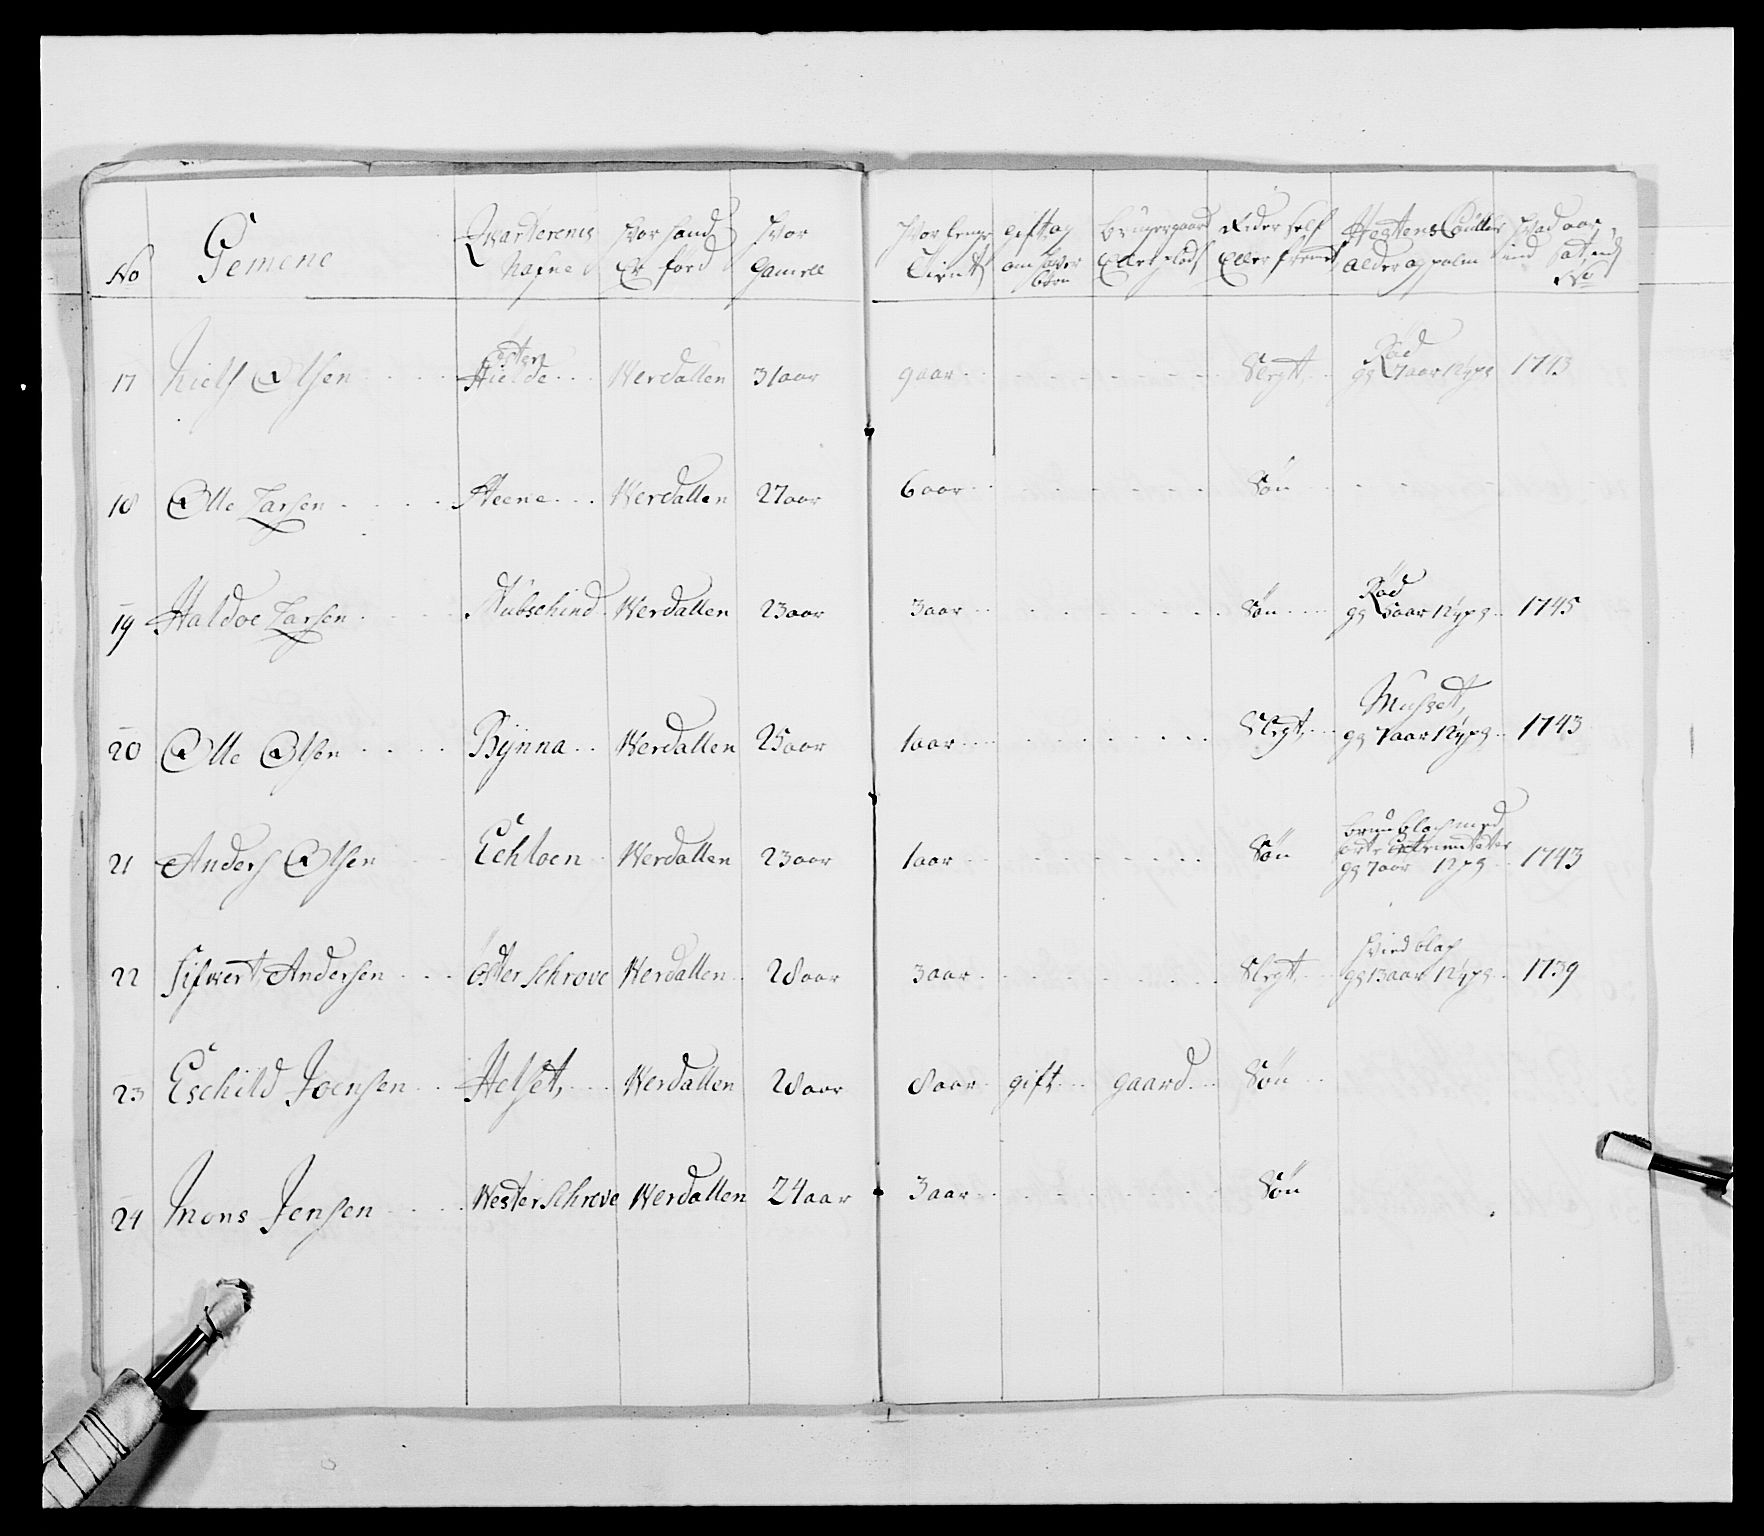 No Gemene Qvarterenis Nafne Hvor hand Er förd Hvor Gamell Hvor lenge Tient gift og om haver börn bruger gaard Eller plads Rider self Eller fremt Hestens Coullör Alder og palm Hvad aar ind Sat, og No
17 Niels Olsen Öster Hielde Werdallen 31 aar 9 aar Slegt Rød gg 7 aar 12 qr 1743
18 Olle Larsen Steene Werdallen 27 aar 6 aar Søn
19 Haldoe Larsen Kubschind Werdallen 23 aar 3 aar Søn Rød gg 5 aar 12 qr 1745
20 Olle Olsen Bynna Werdallen 25 aar 1 aar Slegt Musset, gg 7 aar 12 qr 1743
21 Anders Olsen Echloen Werdallen 23 aar 1 aar Søn brun blach med gg 7 aar 12 qr 1743
22 Sifwert Andersen Öster Schrove Werdallen 28 aar 3 aar Slegt Hvid blach gg 13 aar 12 qr 1739
23 Eschild Joensen Helset, Werdallen 28 aar 8 aar gift gaard Søn
24 Mons Jensen Wester Schrove Werdallen 24 aar 3 aar Søn